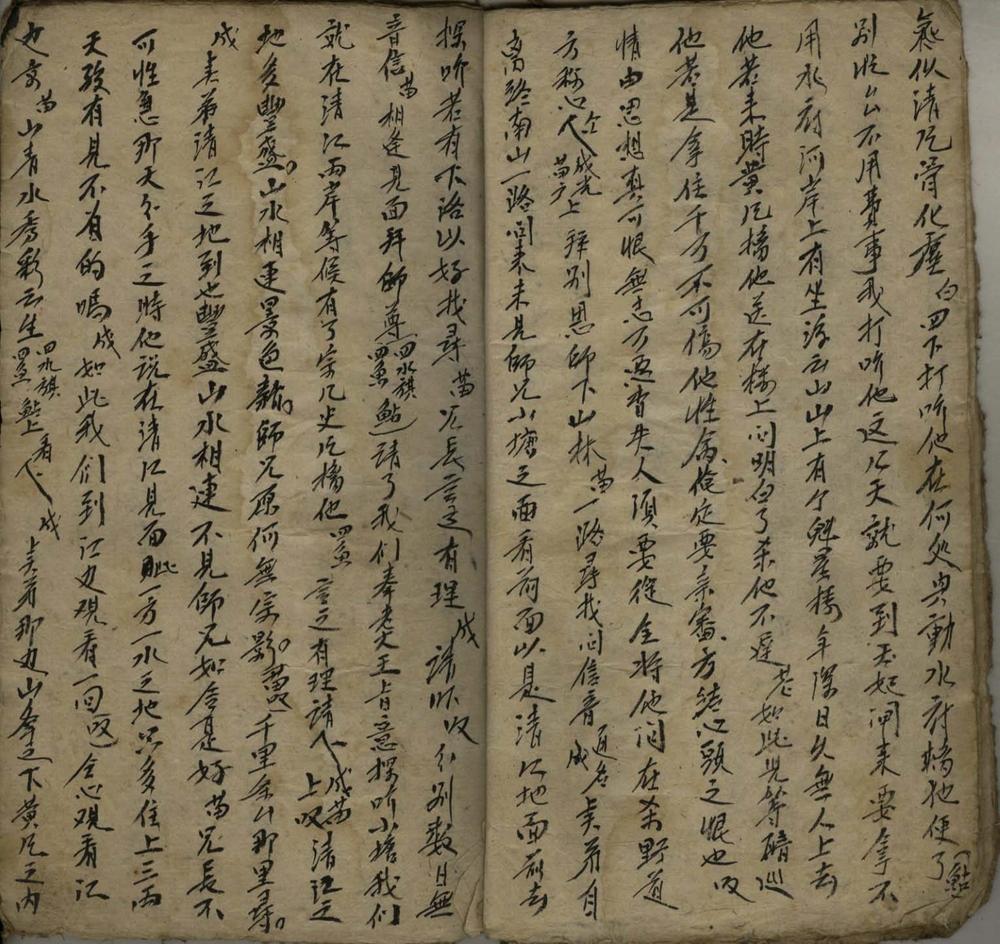 氣似清风骨化塵 白 四下打听他在何处兴動水府擒他便了 鮎
别忙么不用費事我打听他这几天就要到玉妃閘来要拿不
用水府河岸上有坐浮云山山上有个魁星楼年深日久無人上去
他若来時黄风擒他送在楼上问明白了杀他不遲 老 如此兄等暗巡
他若是拿住千万不可傷他性命 俺定要亲審方結心頭之恨也 叹
情由思想真可恨無志万迴杳失人須要從全将他问在荒野道
方称心 仝下 成光苗广上 拜别恩师下山林 苗 一路寻找问信音 通名 成 吴弟自
离終南山一路问来未見师兄小塘之面看前面以是清江地面前去
探听若有下洛以好找寻 苗 兄長言之有理 成 請听叹 分别数日無
音信 苗 相逢見面拜师尊 四水旗四魚鮎上 請了我们奉老大王旨意探听小塘我们
就在清江两岸等候有了宗几史风擒他 四魚 言之有理請 下 成苗上叹 清江之
地多豐盛 山水相連景色新 师兄原何無宗影 苗叹 千里余山那里寻
成 吴弟清江之地到也豐盛山水相連不見师兄如舍是好 苗 兄長不
可性急那天分手之時他说在清江見面 此一方一水之地只多住上三两
天致有見不省的嗎 成 如此我们到江边观看一回 叹 仝心观看江
边京 苗 山青水秀彩云生 四水旗四魚鮎上看 下 成 吴弟那边山峯之下黄风之内